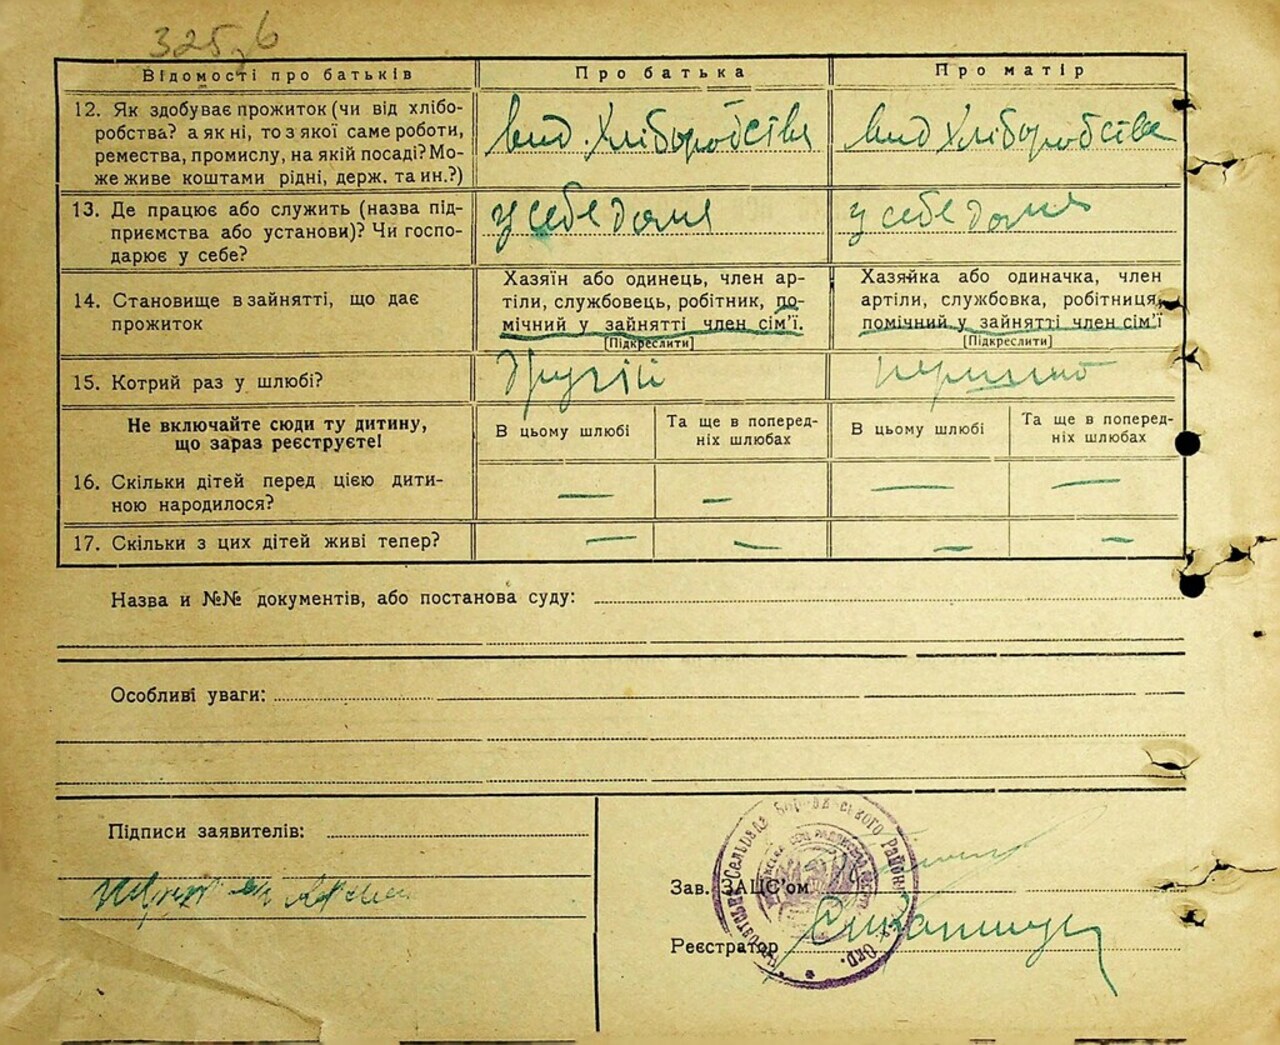 325 б
Відомості про батьків
Про батька
Про матір
12. Як здобуває прожиток (чи від хлібо-
робства? а як ні, то з якої саме роботи,
ремества, промислу, на якій посаді? Мо-
же живе коштами рідні, держ. та ин.?)
вид. Хліборобства
вид Хліборобства
13. Де працює або служить (назва під-
приємства або установи)? Чи госпо-
дарює у себе?
у себе дома
у себе дома
14. Становище в зайнятті, що дає
прожиток
Хазяїн або одинець, член ар-
тіли, службовець, робітник, по-
мічний у зайнятті член сім’ї.
[Підкреслити]
Хазяйка або одиначка, член
артіли, службовка, робітниця,
помічний у зайнятті член сім’ї
[Підкреслити]
15. Котрий раз у шлюбі?
другий
Не включайте сюди ту дитину,
що зараз реєструєте!
В цьому шлюбі
Та ще в поперед-
ніх шлюбах
В цьому шлюбі
Та ще в поперед-
ніх шлюбах
16. Скільки дітей перед цією дити-
ною народилося?
— — — —
17. Скільки з цих дітей живі тепер?
— — — —
Назва и №№ документів, або постанова суду:
Особливі уваги:
Підписи заявителів:
Зав. ЗАЦС’ом
Реєстратор